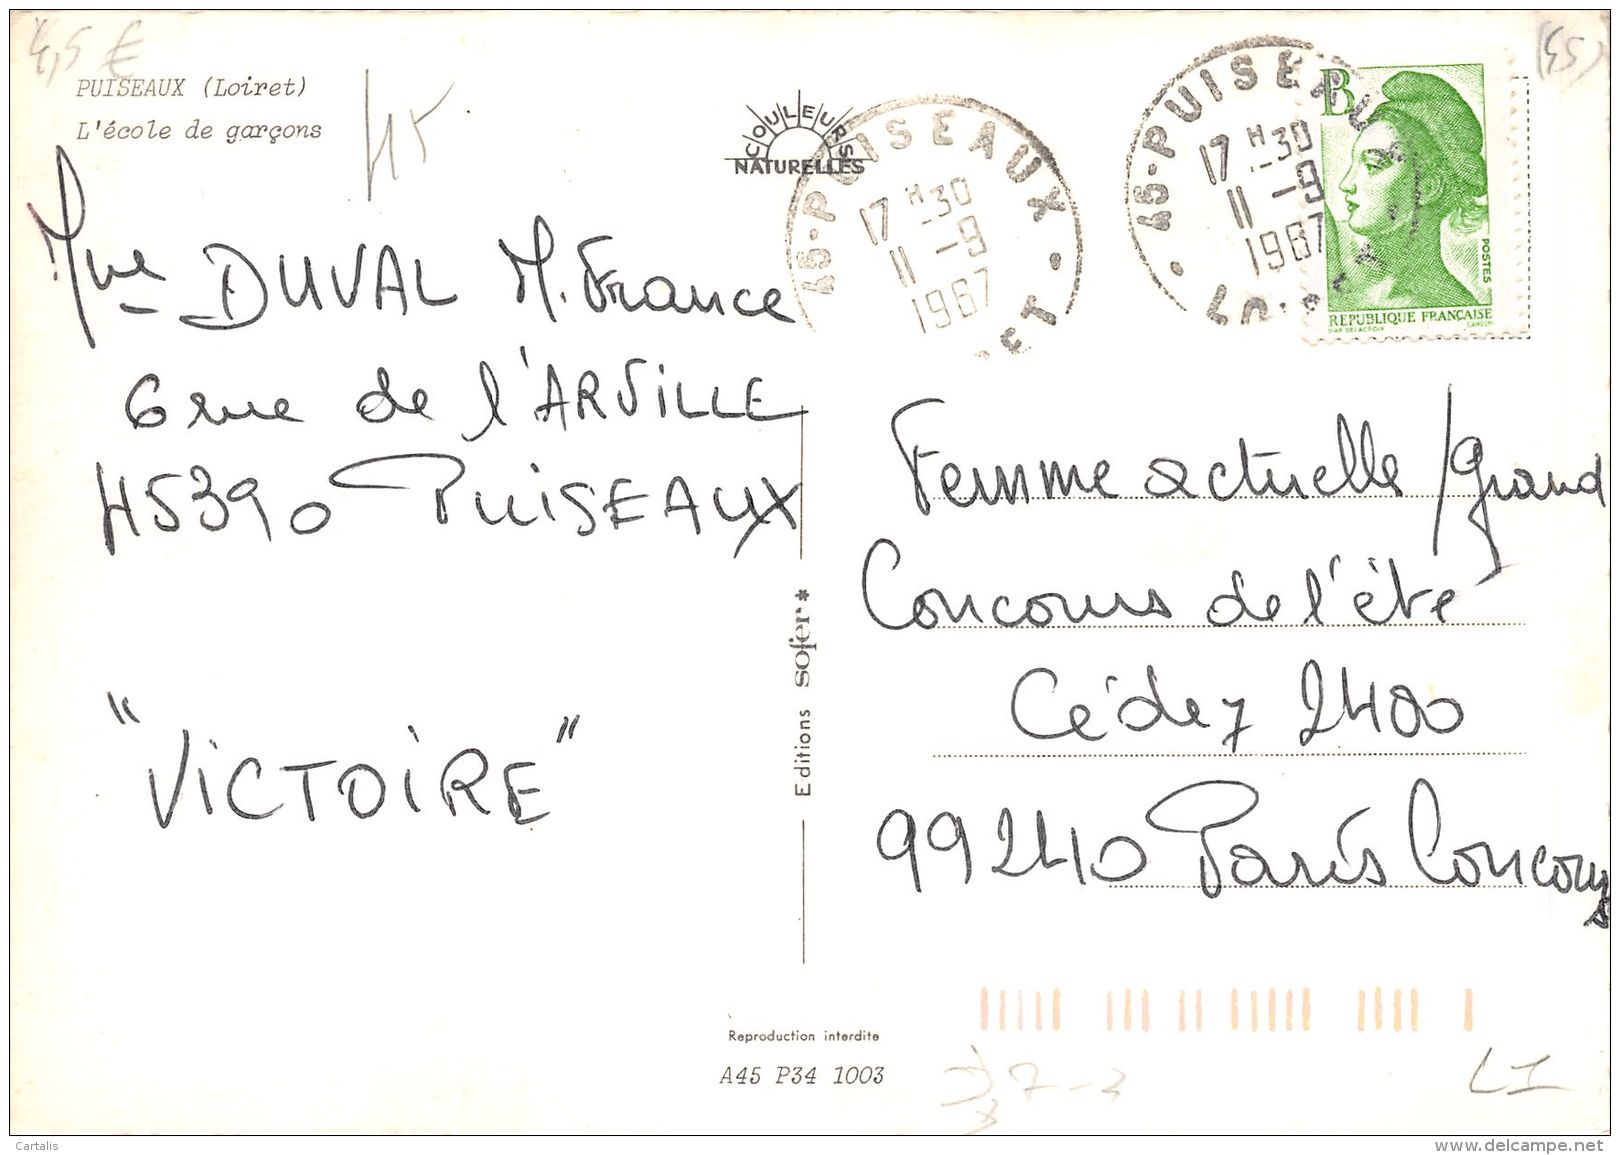 4,5 €
(45)
PUISEAUX (Loiret)
L'école de garçons
45
COULEURS
NATURELLES
45-PUISEAUX
17 H 30
11 -9
1987
45-PUISEAUX
17 H 30
11 -9
1987
B
POSTES
RÉPUBLIQUE FRANÇAISE
D'AP. DELACROIX
GANDON
Mme DUVAL M. France
6 rue de l'ARVILLE
45390 PUISEAUX
"VICTOIRE"
Femme actuelle / Grand
Concours de l'été
Cédex 2400
99240 Paris Concours
Editions sofer*
Reproduction interdite
A45 P34 1003
Cartalis
www.delcampe.net